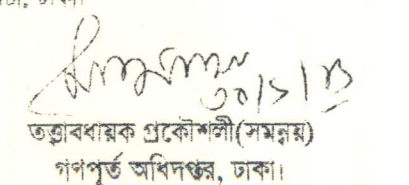 ঢাকা।
৩০/১/১৩
তত্ত্বাবধায়ক প্রকৌশলী(সমন্বয়)
গণপূর্ত অধিদপ্তর, ঢাকা।